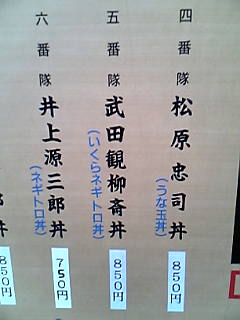 四番隊
松原忠司丼
(うな玉丼)
850円
五番隊
武田観柳斎丼
(いくらネギトロ丼)
850円
六番隊
井上源三郎丼
(ネギトロ丼)
750円
丼
850円